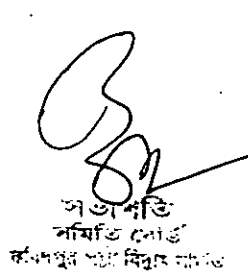 সভাপতি
সমিতি বোর্ড
ফরিদপুর পল্লী বিদ্যুৎ সমিতি